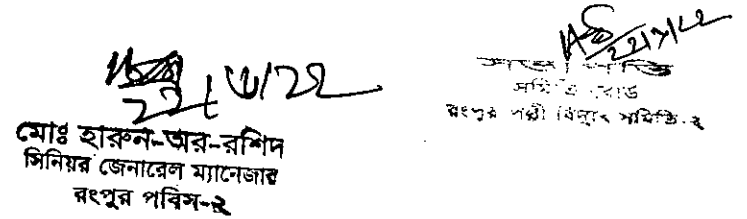 মোঃ হারুন-অর-রশিদ
সিনিয়র জেনারেল ম্যানেজার
রংপুর পবিস-২
সভাপতি
সমিতি বোর্ড
রংপুর পল্লী বিদ্যুৎ সমিতি-২